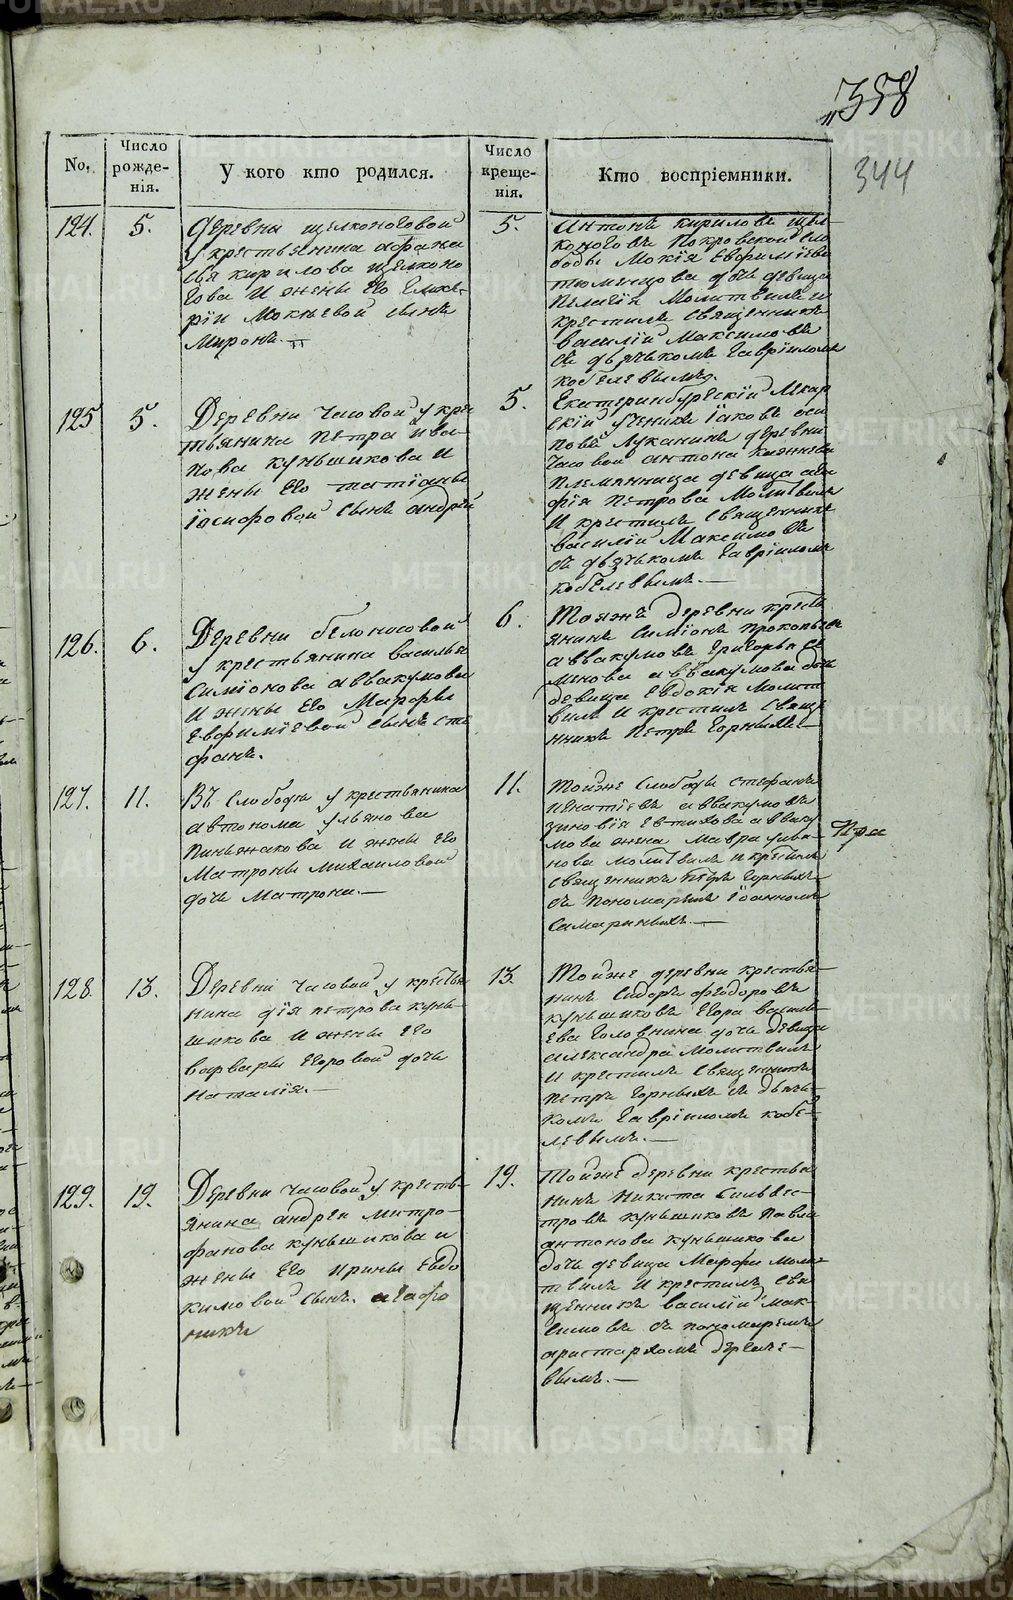 358
344
No.
Число рожде-нія.
У кого кто родился.
Число креще-нія.
Кто воспріемники.
124.
5.
Деревни щелконоговой
у крестьянина афана
сья кирилова щелконо
гова и жены его Глике-
ріи Мокиевой сынъ
Миронъ.
5.
Антонъ кириловъ щел
коноговъ Покровской сло
боды Мокія Евфиміева
тюменцова дочь девица
Пелагія Молитвилъ и
крестилъ священникъ
василій Максимовъ
съ дьячькомъ гавріиломъ
кобелевымъ.
125
5.
Деревни Часовой у крес
тьянина петра ива-
нова куньшикова и
жены его татіаны
іосифовой сынъ андрей
5.
Екатеринбургскій лекар
скій ученикъ іаковъ оси
повъ Луканинъ деревни
Часовой антона
племянница девица ага
фія петрова Молитвилъ
и крестилъ священникъ
василій Максимовъ
съ дьячькомъ гавріиломъ
кобелевымъ.—
126.
6.
Деревни белоносовой
у крестьянина василья
Симіонова аввакумова
и жены его Марфы
Евфиміевой сынъ сте
фанъ.
6.
Тояжъ деревни кресть
янинъ Симіонъ прокопьевъ
аввакумовъ григорья се
менова аввакумова дочь
девица евдокія молит
вилъ и крестилъ свящ
нникъ Петръ Горныхъ—
127.
11.
Въ слободы у крестьянина
автонома ульянова
пиньжакова и жены его
Матроны михаиловой
дочь Матрона.—
11.
Тойже слободы стефанъ
игнатіевъ аввакумовъ
зиновія евтихова авваку
мова жена мавра улья
нова молитвилъ и крестилъ
священникъ петръ горныхъ
съ пономаремъ іоанномъ
самариныхъ.—
Пра
128.
13.
Деревни часовой у крестья
нина дія петрова кунь-
шикова и жены его
варвары егоровой дочь
наталія.—
13.
Тойже деревни крестья-
нинъ Сидоръ феодоровъ
куньшиковъ Егора василь
ева головнина дочь девица
александра Молитвилъ
и крестилъ священникъ
петръ горныхъ съ дьячь-
комъ гавріиломъ кобе-
левымъ.—
129.
19.
Деревни часовой у кресть-
янина андрея митро-
фанова куньшикова и
жены его ирины евдо
кимовой сынъ. агафо
никъ
19.
Тойже деревни крестья
нинъ никита сильвес-
тровъ куньшиковъ павла
антонова куньшикова
дочь девица Марфа мол-
твилъ и крестилъ свя
щенникъ василій мак-
симовъ съ пономаремъ
аристархомъ
вымъ.—